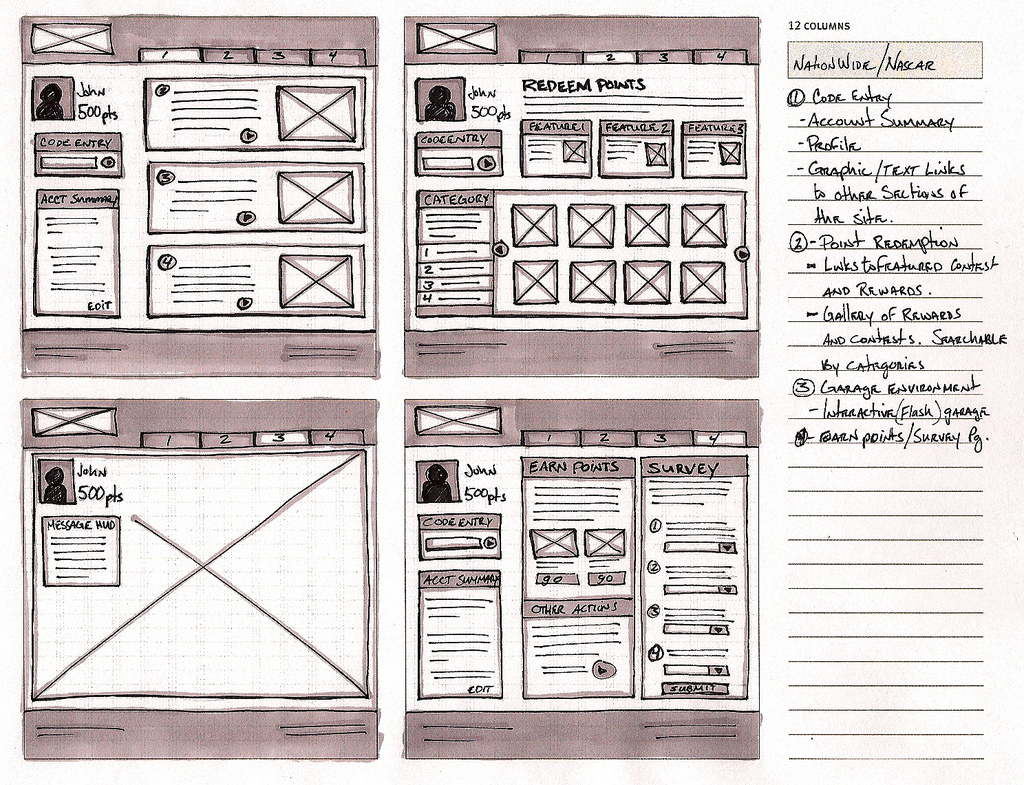 1 2 3 4
John
500pts
CODE ENTRY
ACCT SUMMARY
EDIT
2
3
4
1 2 3 4
John
500pts
REDEEM POINTS
CODE ENTRY
FEATURE 1 FEATURE 2 FEATURE 3
CATEGORY
1
2
3
4
1 2 3 4
John
500pts
MESSAGE HUD
1 2 3 4
John
500pts
CODE ENTRY
ACCT SUMMARY
EDIT
EARN POINTS
go go
OTHER ACTIONS
SURVEY
1
2
3
4
SUBMIT
12 COLUMNS
NATIONWIDE/NASCAR
1 CODE ENTRY
- ACCOUNT SUMMARY
- PROFILE
- GRAPHIC/TEXT LINKS
to other SECTIONS OF
the site.
2 - POINT REDEMPTION
- LINKS to FEATURED CONTEST
AND REWARDS.
- GALLERY OF REWARDS
AND CONTESTS. SEARCHABLE
BY CATEGORIES
3 GARAGE ENVIRONMENT
- INTERACTIVE (Flash) garage
4 - EARN POINTS/SURVEY Pg.